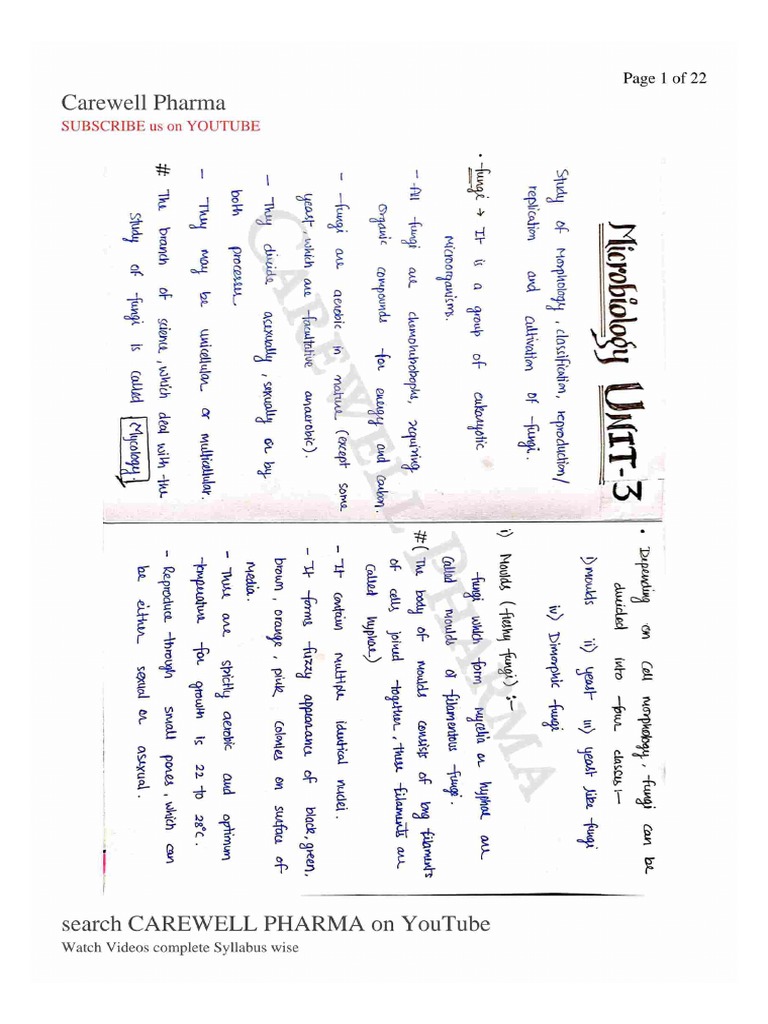 Page 1 of 22
Carewell Pharma
SUBSCRIBE us on YOUTUBE
Microbiology UNIT-3
Study of Morphology, classification, reproduction/
replication and cultivation of fungi.
• fungi → It is a group of eukaryotic
microorganisms.
- All fungi are chemotrotophs, requiring
organic compounds for energy and carbon.
- fungi are aerobic in nature (except some
yeast, which are facultative anaerobic).
- They divide asexually, sexually or by
both processes.
- They may be unicellular or multicellular.
# The branch of science, which deal with the
study of fungi is called Mycology.
• Depending on cell morphology, fungi can be
divided into four classes:-
i) moulds ii) yeast iii) yeast like fungi
iv) Dimorphic fungi
i) Moulds (fleshy fungi) :-
fungi which form mycelia or hyphae are
called moulds or filamentous fungi.
# (The body of moulds consist of long filaments
of cells joined together, these filaments are
called hyphae)
- It contain multiple identical nuclei.
- It forms fuzzy appearance of black, green,
brown, orange, pink colonies on surface of
media.
- There are strictly aerobic and optimum
temperature for growth is 22 to 28°C.
- Reproduce through small pores, which can
be either sexual or asexual.
CAREWELL PHARMA
search CAREWELL PHARMA on YouTube
Watch Videos complete Syllabus wise